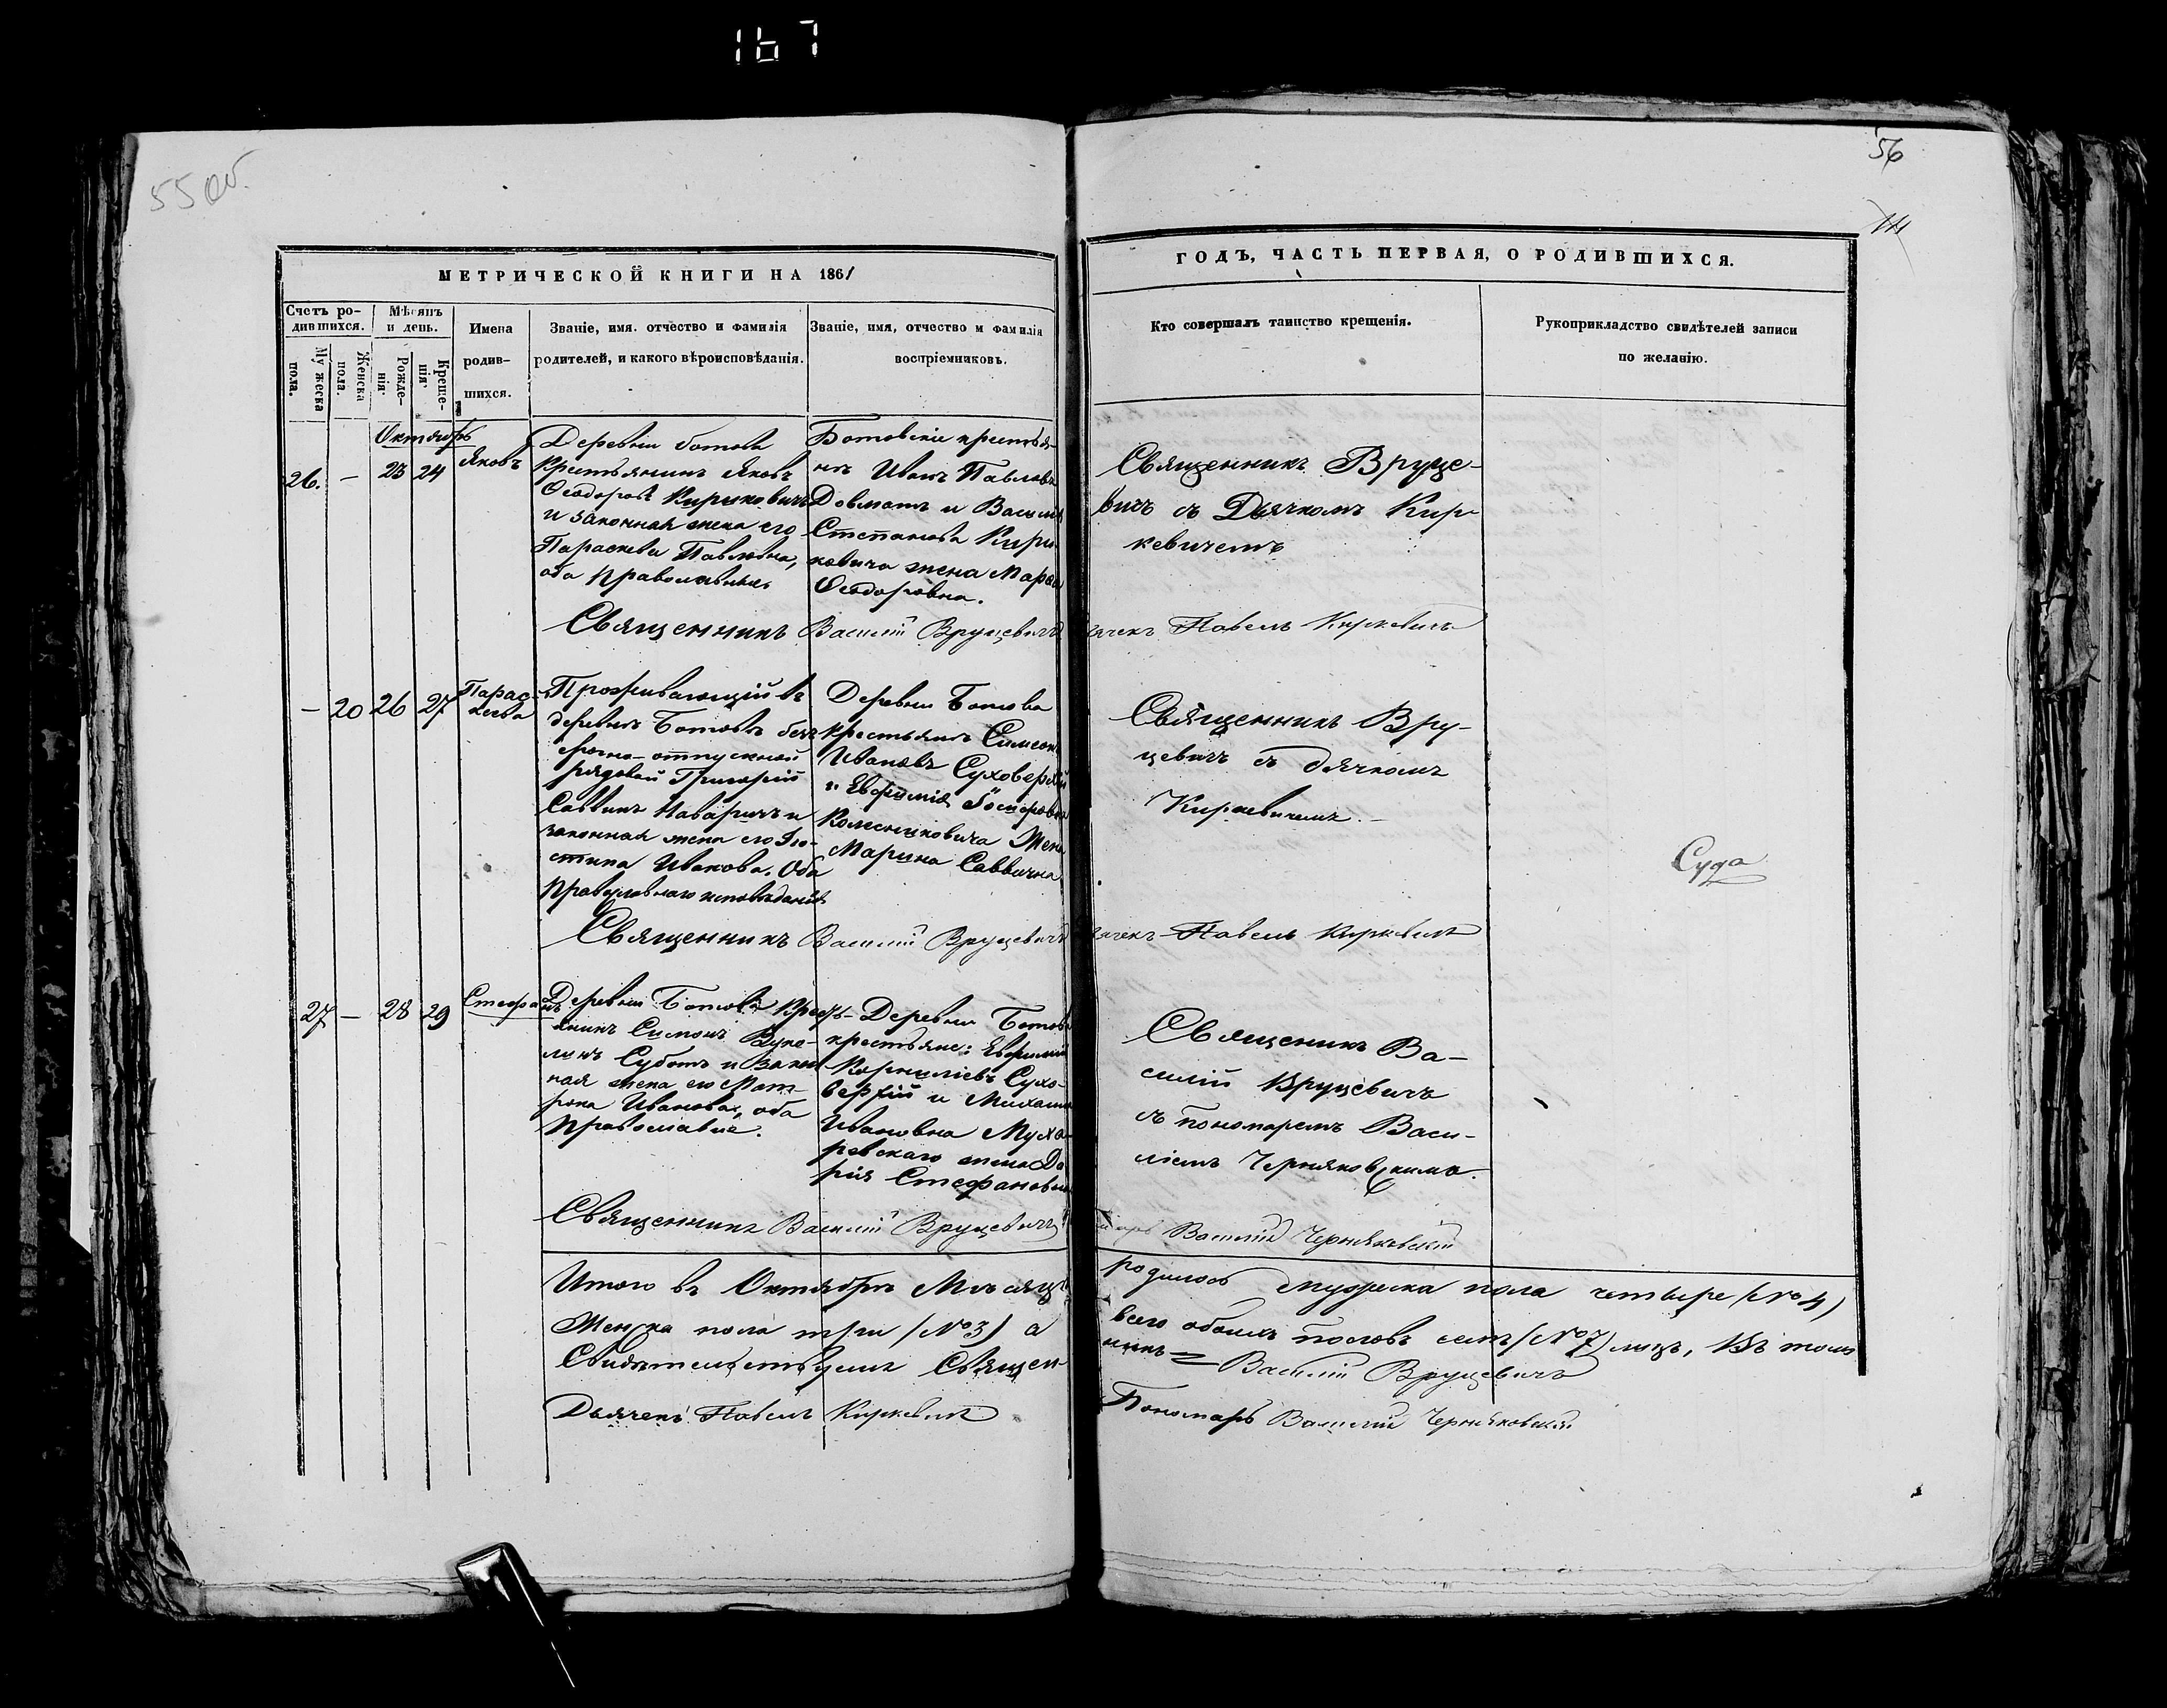 167
55 об.
56
14
МЕТРИЧЕСКОЙ КНИГИ НА 1861
ГОДЪ, ЧАСТЬ ПЕРВАЯ, О РОДИВШИХСЯ.
Счетъ ро-
дившихся.
Мужеска
пола.
Женска
пола.
Мѣсяцъ
и день.
Рожде-
нія.
Креще-
нія.
Имена
родив-
шихся.
Званіе, имя, отчество и фамилія
родителей, и какого вѣроисповѣданія.
Званіе, имя, отчество и фамилія
воспріемниковъ.
Кто совершалъ таинство крещенія.
Рукоприкладство свидѣтелей записи
по желанію.
Октябрь
26. — 23 24
Яковъ
Деревни Ботова
Крестьянинъ Яковъ
Ѳеодоровъ Кириковичъ
и законная жена его
Параскева Павлова,
оба православные
Ботовскіе крестья-
нъ Иванъ Павловъ
Довматъ и Василія
Степанова Кири-
ковича жена Марѳа
Ѳеодоровна.
Священникъ Вруце-
вичъ съ Дьячкомъ Кир-
кевичемъ
Священникъ Василій Вруцевичъ
Дьячекъ Павелъ Киркевичъ
— 20 26 27
Парас-
кева
Проживающій въ
деревнѣ Ботовѣ без-
срочно-отпускной
рядовой Григорій
Саввинъ и
законная жена его Іу-
стина Иванова. Оба
Православнаго исповѣданія
Деревни Ботова
крестьянъ Симеонъ
Ивановъ Суховерхій
и Евфимія
Колесниковича Жена
Марина Саввична
Священникъ Вру-
цевичъ съ дьячкомъ
Киркевичемъ.
Суда
Священникъ Василій Вруцевичъ
Дьячекъ Павелъ Киркевичъ
27 — 28 29
Стефа
нъ
Деревни Ботова Кресть-
янинъ Симонъ
Суботъ и Закон-
ная жена его Мат-
рона Иванова, оба
Православные.
Деревни Ботова
крестьяне: Евфимій
Корниліевъ Сухо-
верхій и Михаила
Ивановна Муха-
ревскаго жена Да-
рія Стефановна
Священикъ Ва-
силій Вруцевичъ
съ пономаремъ Васи-
ліемъ Черняковскимъ.
Священникъ Василій Вруцевичъ
Пономарь Василій Черняковскій
Итого въ Октябрѣ Мѣсяцѣ родилось мужеска пола четыре (№ 4)
Женска пола три (№ 3) а всего обоихъ половъ семь (№ 7) лицъ, Въ томъ
Свидѣтельствуемъ Священ-никъ Василій Вруцевичъ
Дьячекъ Павелъ Киркевичъ
Пономарь Василій Черняковскій